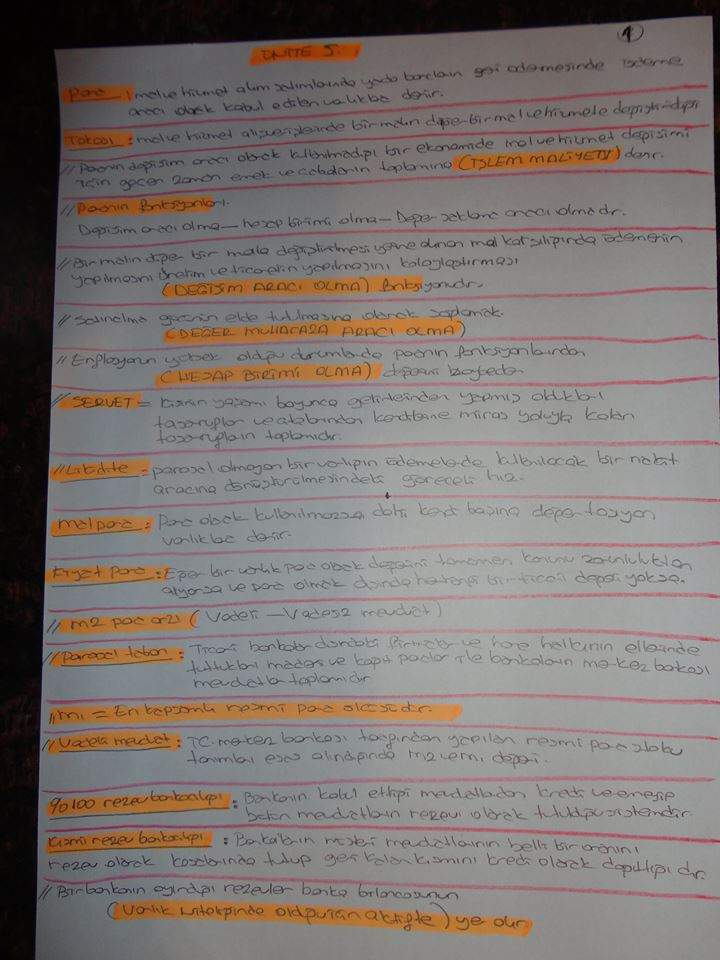 1
ÜNİTE 5.
Para : mal ve hizmet alım satımlarında yada borcların geri ödemesinde ödeme
aracı olarak kabul edilen varlıklara denir.
Takas : mal ve hizmet alışverişlerinde bir malın diğer bir mal ve hizmetle değiştirildiği
// Paranın değişim aracı olarak kullanılmadığı bir ekonomide mal ve hizmet değişimi
için geçen zaman emek ve çabaların toplamına (İŞLEM MALİYETİ) denir.
// Paranın fonksiyonları.
Değişim aracı olma — hesap birimi olma — Değer saklama aracı olmadır.
// Bir malın diğer bir malla değiştirilmesi yerine alınan mal karşılığında ödemenin
yapılması üretim ve ticaretin yapılmasını kolaylaştırması
(DEĞİŞİM ARACI OLMA) fonksiyonudur.
// Satınalma gücünün elde tutulmasına olanak sağlamak.
(DEĞER MUHAFAZA ARACI OLMA)
// Enflasyonun yüksek olduğu durumlarda paranın fonksiyonlarından
(HESAP BİRİMİ OLMA) değerini kaybeder
// SERVET = Kişinin yaşamı boyunca gelirlerinden yapmış oldukları
tasarruflar ve atalarından kendilerine miras yoluyla kalan
tasarrufların toplamıdır.
// Likidite - parasal olmayan bir varlığın ödemelerde kullanılacak bir nakit
aracına dönüştürülmesindeki göreceli hız.
mal para : Para olarak kullanılmazsa dahi kendi başına değer taşıyan
varlıklara denir.
İtiyat para : Eğer bir varlık para olarak değerini tamamen kanunu zorunluluktan
alıyorsa ve para olmak dışında herhangi bir ticari değeri yoksa.
// m2 para arzı (Vadeli — Vadesiz mevduat)
// parasal taban : Ticari bankalar dışındaki firmalar ve hane halkının ellerinde
tuttukları madeni ve kağıt paralar ile bankaların merkez bankası
mevduatları toplamıdır
// m1 = En kapsamlı resmi para ölçüsüdür.
// Vadeli mevduat : TC. merkez bankası tarafından yapılan resmi para stoku
tanımları esas alındığında m2 vemı değeri.
%100 rezerv bankacılığı : Bankanın kabul ettiği mevduatlardan kredi vermeyip
bütün mevduatların rezerv olarak tutulduğu sistemdir.
Kısmi rezerv bankacılığı : Bankaların mevcut mevduatlarının belli bir oranını
rezerv olarak kasalarında tutup geri kalan kısmını kredi olarak dağıttığı dır.
// Bir bankanın ayırdığı rezervler banka bilançosunun
(Varlık niteliğinde olduğundan aktifte) yer alır.